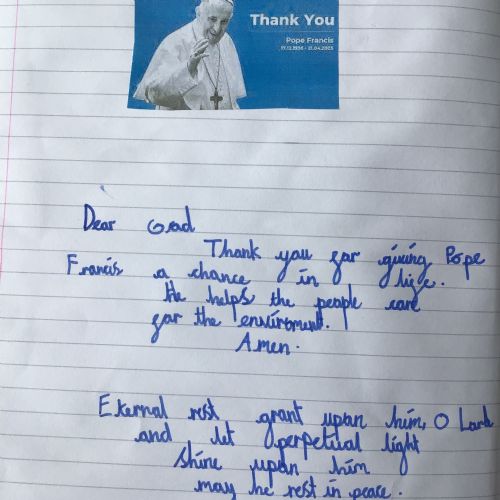 Thank You
Pope Francis
17.12.1936 - 21.04.2025
Dear God
Thank you for giving Pope
Francis a chance in life.
He helps the people care
for the enviroment.
Amen.
Eternal rest grant upon him, O Lord
and let perpetual light
shine upon him
may he rest in peace.